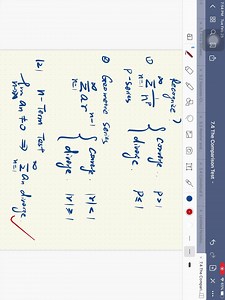 7.5 The Comparison Test
7.4 The Compari...
Recognize?
① ∑_{n=1}^{∞} 1/n^p { converge. p>1
diverge. p≤1
p-series
② Geometric series
∑_{n=1}^{∞} ar^{n-1} { converge. |r|<1
diverge |r|≥1
(2) n-Term Test
lim_{n→∞} an ≠ 0 ⇒ ∑_{n=1}^{∞} an diverge